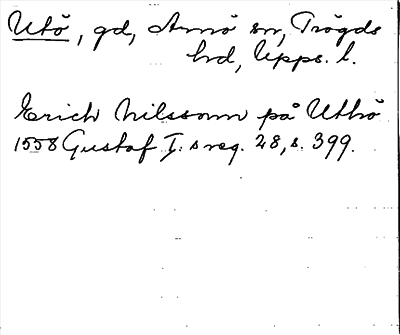 Utö, gd, Arnö sn, Trögds
hrd, Upps. l.
Erich Nilsson på Uthö
1558 Gustaf I:s reg. 28, s. 399.